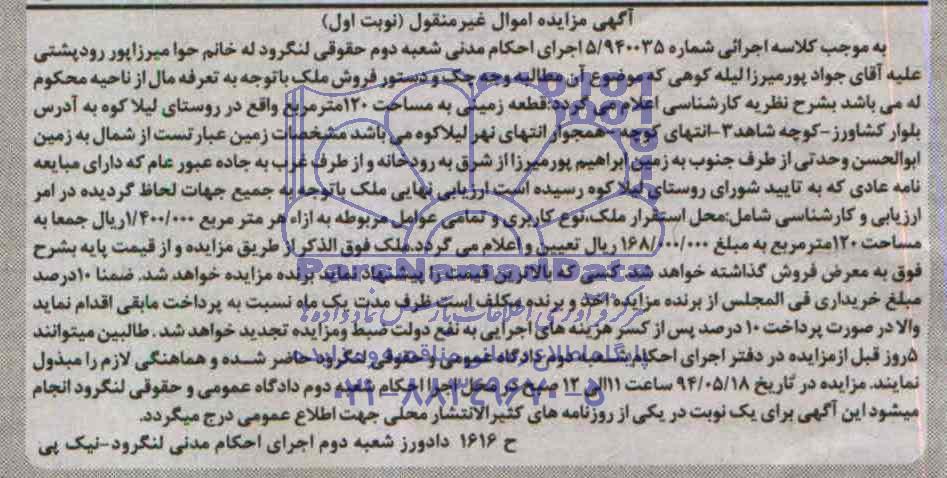 آگهی مزایده اموال غیرمنقول (نوبت اول)
به موجب کلاسه اجرائی شماره ۵/۹۴۰۰۳۵ اجرای احکام مدنی شعبه دوم حقوقی لنگرود له خانم حوا میرزاپور رودپشتی
علیه آقای جواد پورمیرزا لیله کوهی که موضوع آن مطالبه وجه چک و دستور فروش ملک باتوجه به تعرفه مال از ناحیه محکوم
له می باشد بشرح نظریه کارشناسی اعلام می گردد:قطعه زمینی به مساحت ۱۲۰مترمربع واقع در روستای لیلا کوه به آدرس
بلوار کشاورز-کوچه شاهد۳-انتهای کوچه -همجوار انتهای نهر لیلاکوه می باشد مشخصات زمین عبارتست از شمال به زمین
ابوالحسن وحدتی از طرف جنوب به زمین ابراهیم پورمیرزا از شرق به رودخانه و از طرف غرب به جاده عبور عام که دارای مبایعه
نامه عادی که به تایید شورای روستای لیلا کوه رسیده است ارزیابی نهایی ملک باتوجه به جمیع جهات لحاظ گردیده در امر
ارزیابی و کارشناسی شامل:محل استقرار ملک،نوع کاربری و تمامی عوامل مربوطه به ازاء هر متر مربع ۱/۴۰۰/۰۰۰ریال جمعا به
مساحت ۱۲۰مترمربع به مبلغ ۱۶۸/۰۰۰/۰۰۰ ریال تعیین و اعلام می گردد.ملک فوق الذکر از طریق مزایده و از قیمت پایه بشرح
فوق به معرض فروش گذاشته خواهد شد. کسی که بالاترین قیمت را پیشنهاد نماید برنده مزایده خواهد شد. ضمنا ۱۰درصد
مبلغ خریداری فی المجلس از برنده مزایده اخذ و برنده مکلف است ظرف مدت یک ماه نسبت به پرداخت مابقی اقدام نماید
والا در صورت پرداخت ۱۰ درصد پس از کسر هزینه های اجرایی به نفع دولت ضبط ومزایده تجدید خواهد شد . طالبین میتوانند
۵روز قبل ازمزایده در دفتر اجرای احکام شعبه دوم دادگاه عمومی و حقوقی لنگرود حاضر شده و هماهنگی لازم را مبذول
نمایند. مزایده در تاریخ ۹۴/۰۵/۱۸ ساعت ۱۱الی ۱۲ صبح در محل اجرا احکام شعبه دوم دادگاه عمومی و حقوقی لنگرود انجام
میشود این آگهی برای یک نوبت در یکی از روزنامه های کثیرالانتشار محلی جهت اطلاع عمومی درج میگردد.
ح ۱۶۱۶ دادورز شعبه دوم اجرای احکام مدنی لنگرود-نیک پی
ParsNamadData
۰۲۱-۸۸۳۴۹۶۷۰-۵